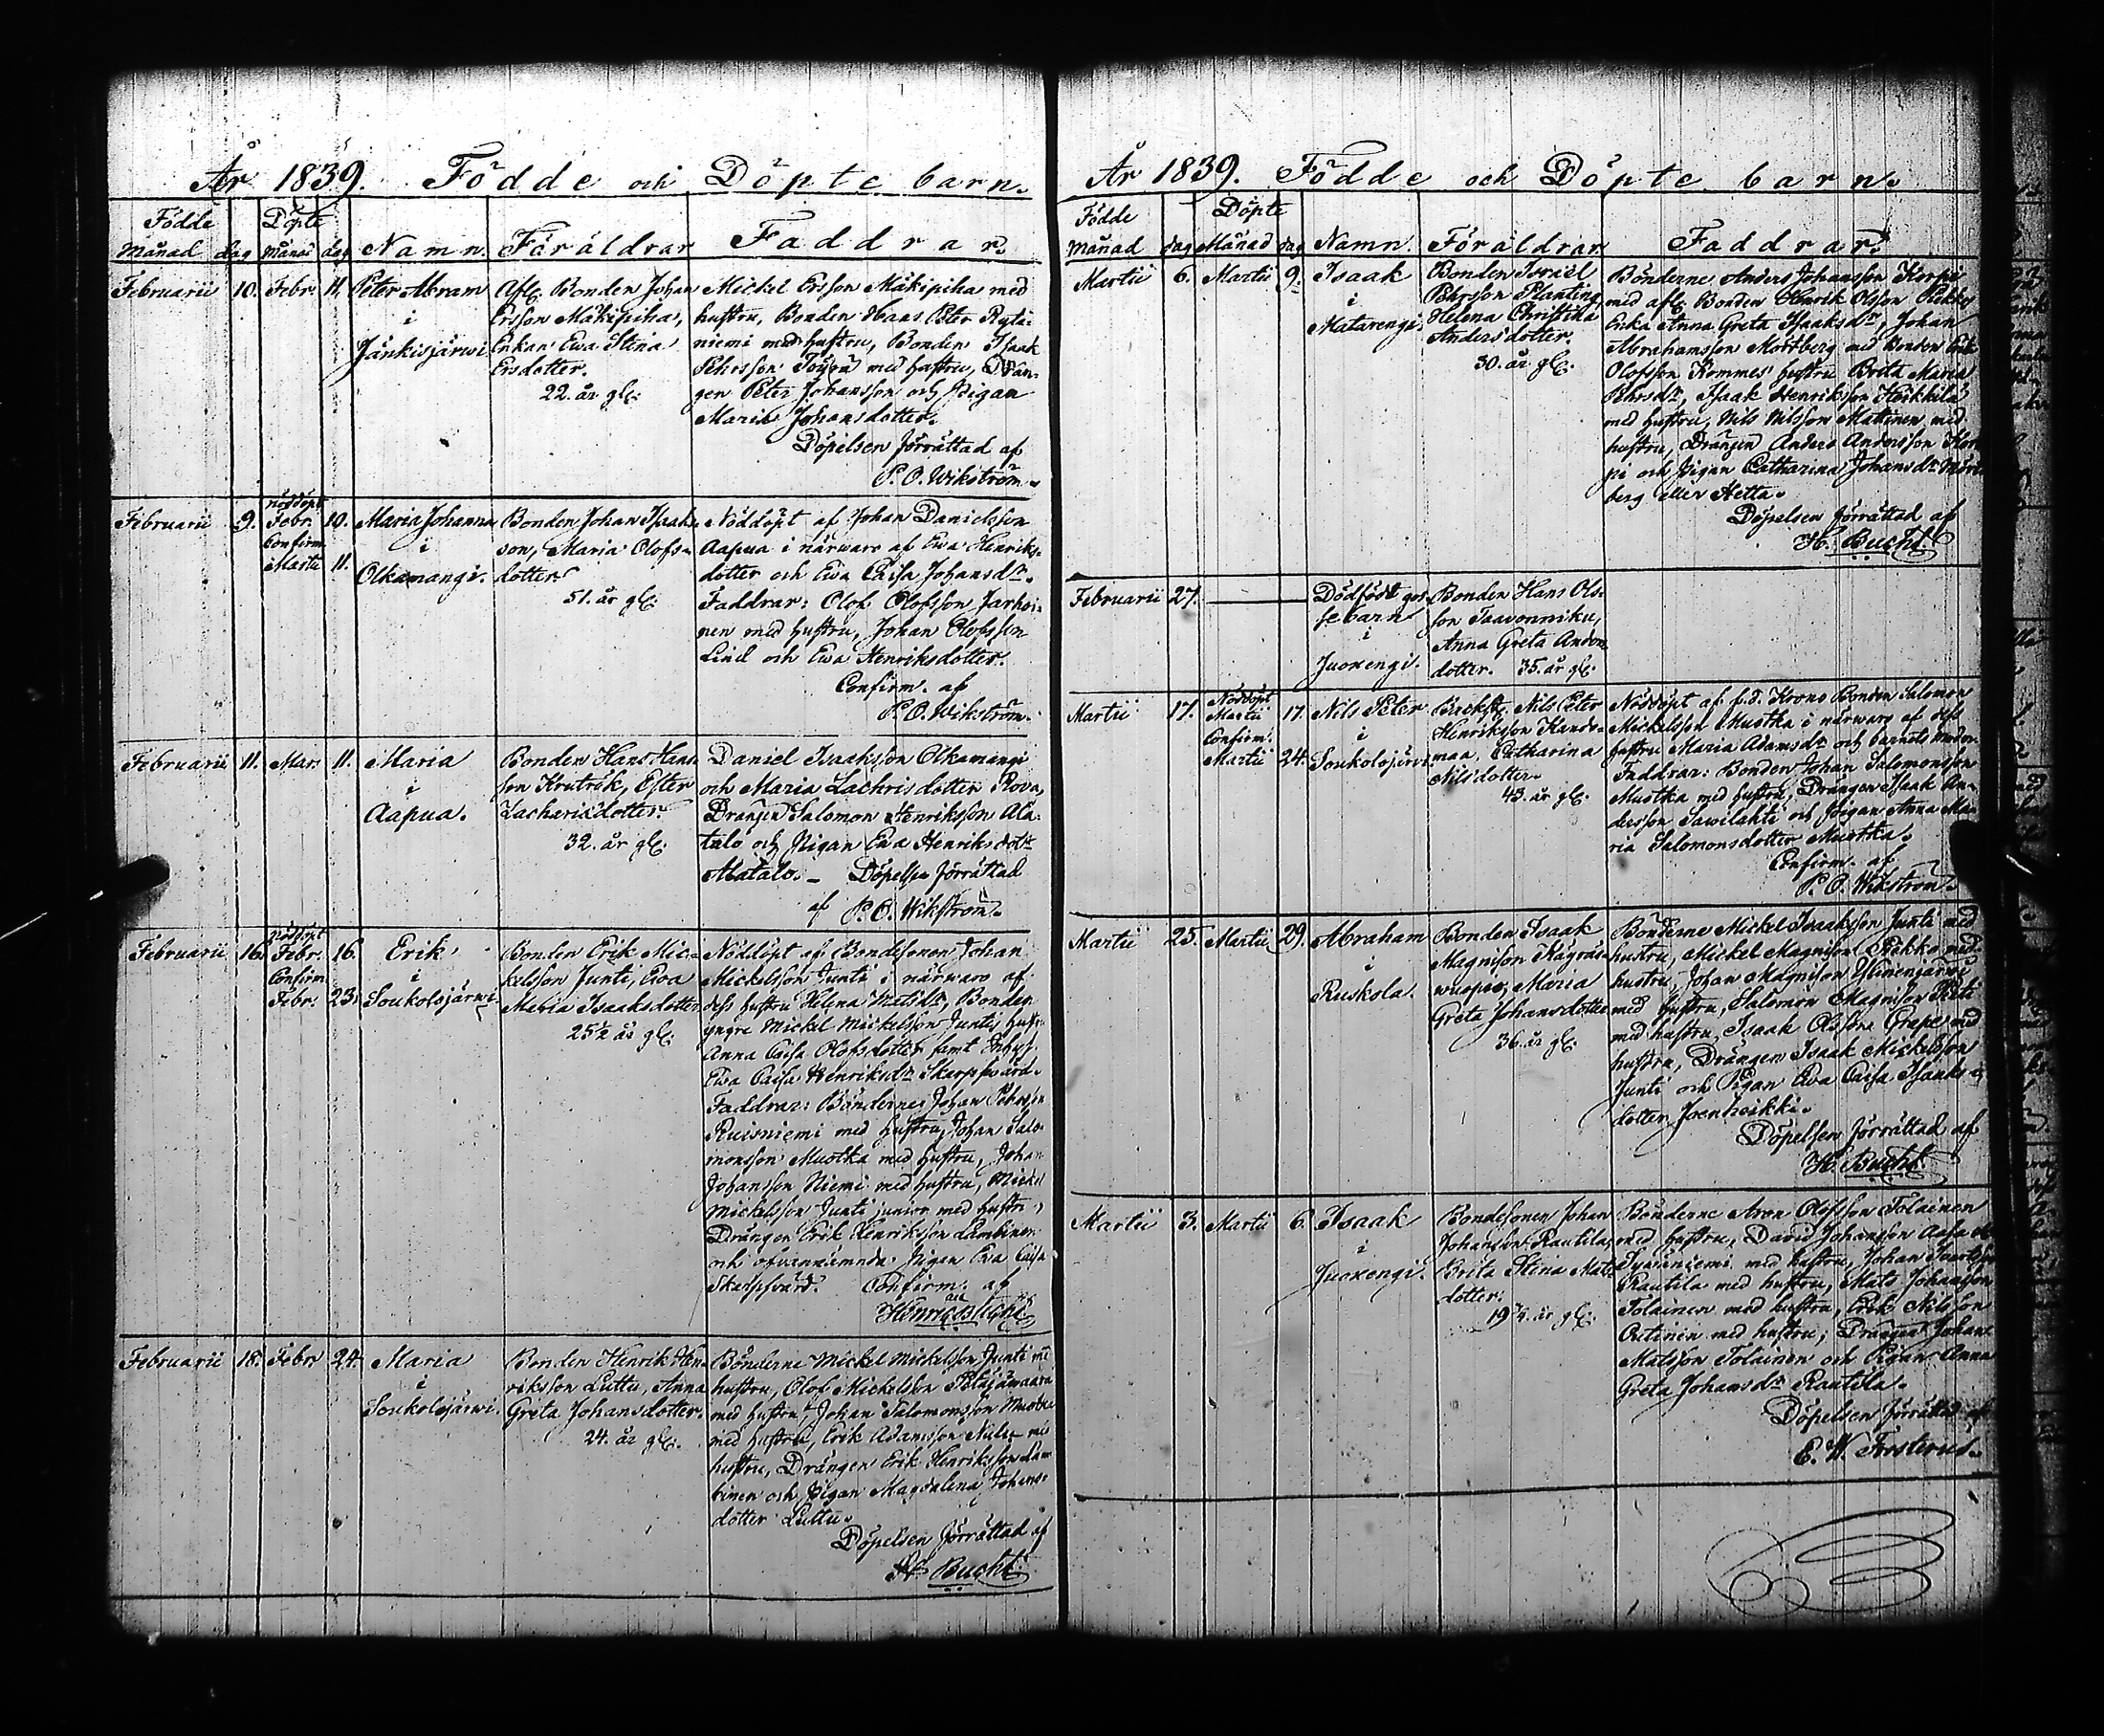 År 1839. Födde och Döpte barn.
Födde Döpte
Månad dag Månad dag Namn. Föräldrar Faddrar.
Februarii 10. Febr. 11. Peter Abram
i
Jänkisjärwi
Afl. Bonden Johan
Ersson Mäkipiha,
Enkan Ewa Stina
Ersdotter.
22. år gl.
Mickel Ersson Mäkipiha med
hustru, Bonden Hans Peter Rytä-
niemi med hustru, Bonden Isaak
Pehrsson Töyrä med hustru, Drän-
gen Peter Johansson och Pigan
Maria Johansdotter.
Döpelsen förrättad af
P. O. Wikström.
Februarii 9. nöddöpt
Febr. 10.
Confirm.
Martii 11.
Maria Johanna
i
Olkamangi.
Bonden Johan Isaaks-
son, Maria Olofs-
dotter
51. år gl.
Nöddöpt af Johan Danielsson
Aapua i närwaro af Ewa Henriks-
dotter och Ewa Caisa Johansdr.
Faddrar: Olof Olofsson Jarhoi-
nen med hustru, Johan Olofsson
Lind och Ewa Henriksdotter.
Confirm. af
P. O. Wikström.
Februarii 11. Mars 11. Maria
i
Aapua.
Bonden Hans Hans-
son Krutrök, Ester
Zacharisdotter.
32. år gl.
Daniel Isaaksson Olkamangi
och Maria Zachrisdotter Rova,
Drängen Salomon Henriksson Ala-
talo och Pigan Ewa Henriksdotr
Alatalo. – Döpelsen förrättad
af P. O. Wikström.
Februarii 16. Nöddöpt
Febr. 16.
Confirm.
Febr. 23.
Erik
i
Soukolojärwi
Bonden Erik Mic-
kelsson Junti, Ewa
Maria Isaaksdotter
25½ år gl.
Nöddöpt af Bondesonen Johan
Mickelsson Junti i närwaro af
dess hustru Helena Matsdr, Bonden
yngre Mickel Mickelsson Juntis hustr.
Anna Caisa Olofsdotter samt Inhys.
Ewa Caisa Henriksdr Skarpswärd.
Faddrar: Bönderne Johan Pehrsson
Ruisniemi med hustru, Johan Salo-
monsson Muotka med hustru, Johan
Johansson Niemi med hustru, Mickel
Mickelsson Junti junior med hustru,
Drängen Erik Henriksson Lambinen
och ofvannämnda Pigan Ewa Caisa
Skarpswärd. Confirm. af
Henric Bucht
Februarii 18. Febr 24. Maria
i
Soukolojärwi.
Bonden Henrik Hen-
riksson Luttu, Anna
Greta Johansdotter.
24. år gl.
Bönderne Mickel Mickelsson Junti med
hustru, Olof Mickelsson Petäjäwaara
med hustru, Johan Salomonsson Muotka
med hustru, Erik Adamsson med
hustru, Drängen Erik Henriksson Lam-
binen och Pigan Magdalena Johans-
dotter Luttu.
Döpelsen förrättad af
H. Bucht
År 1839. Födde och Döpte barn.
Födde Döpte
Månad dag Månad dag Namn. Föräldrar Faddrar.
Martii 6. Martii 9. Isaak
i
Matarengi.
Bonden Israel
Pehrsson Planting,
Helena Christina
Andersdotter.
30. år gl.
Bönderne Anders Johansson Korpi
med afl. Bonden Henrik Olsson
Enka Anna Greta Isaaksdr, Johan
Abrahamsson Mortberg med Bonden
Olofsson Rommes hustru Brita Maria
Pehrsdr, Isaak Henriksson Heikkilä
med hustru, Nils Nilsson Mattinen med
hustru, Drängen Anders Andersson Kor-
pi och Pigan Catharina Johansdr Mört-
berg eller Hetta.
Döpelsen förrättad af
H. Bucht.
Februarii 27.
Dödfödt gos-
sebarn
i
Juoxengi.
Bonden Hans Ols-
son Taavonniku,
Anna Greta Anders-
dotter. 35. år gl.
Martii 17. Nöddöpt
Martii 17.
Confirm.
Martii 24.
Nils Peter
i
Soukolojärwi
Backst. Nils Peter
Henriksson Kando-
maa, Catharina
Nilsdotter.
43. år gl.
Nöddöpt af f.d. Krono Bonden Salomon
Mickelsson Muotka i närwaro af dess
hustru Maria Adamsdr och barnets moder.
Faddrar: Bonden Johan Salomonsson
Muotka med hustru, Drängen Isaak An-
dersson Sawilahti och Pigan Anna Ma-
ria Salomonsdotter Muotka.
Confirm. af
P. O. Wikström.
Martii 25. Martii 29. Abraham
i
Ruskola.
Bonden Isaak
Magnison Kägräi-
wuopio, Maria
Greta Johansdotter
36. år gl.
Bönderne Mickel Isaaksson Junti med
hustru, Mickel Magnison Pekko med
hustru, Johan Magnison
med hustru, Salomon Magnison
med hustru, Isaak Olsson Grape med
hustru, Drängen Isaak Mickelsson
Junti och Pigan Ewa Caisa Isaaks-
dotter Joenheikki.
Döpelsen förrättad af
H. Bucht.
Martii 3. Martii 6. Isaak
i
Juoxengi.
Bondesonen Johan
Johansson Rautila,
Brita Stina Mats-
dotter.
19¾. år gl.
Bönderne Aron Olofsson Tolainen
med hustru, David Johansson
med hustru, Johan
Rautila med hustru, Mats Johansson
Tolainen med hustru, Erik Nilsson
Outinen med hustru, Drängen Johan
Matsson Tolainen och Pigan Anna
Greta Johansdr Rautila.
Döpelsen förrättad af
E. W. Forsterus.